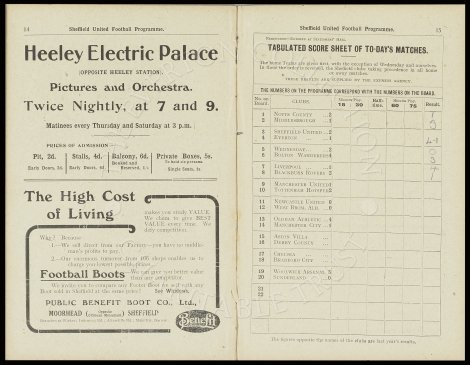 14
Sheffield United Football Programme.
Heeley Electric Palace
(OPPOSITE HEELEY STATION).
Pictures and Orchestra.
Twice Nightly, at 7 and 9.
Matinees every Thursday and Saturday at 3 p.m.
PRICES OF ADMISSION
Pit, 2d. Stalls, 4d. Balcony, 6d. Private Boxes, 5s.
Early Doors, 3d. Early Doors, Booked and Reserved, To hold six persons.
Single Seats, 1s.
The High Cost
of Living
makes you study VALUE.
We claim to give BEST
VALUE every time. We
defy competition.
Why? Because
1.—We sell direct from our Factory—you have no middleman's profits to pay.
2.—Our enormous turnover from 165 shops enables us to
charge you lowest possible prices.
Football Boots
We can give you better value
than any competitor.
We invite you to compare any Footer Boot we sell with any
Boot sold in Sheffield at the same price. See Windows.
PUBLIC BENEFIT BOOT CO., Ltd.,
MOORHEAD SHEFFIELD
Benefit
Sheffield United Football Programme.
15
TABULATED SCORE SHEET OF TO-DAY'S MATCHES.
The Same Teams are given next, with the exception of Wednesday and ourselves.
THE NUMBERS ON THE PROGRAMME CORRESPOND WITH THE NUMBERS ON THE BOARD.
No. on Board. CLUBS. Minutes Play. 15 30 Half-time. Minutes Play. 60 75 Result.
1 Notts County
2 Middlesbrough
3 Sheffield United
4 Everton
5 Wednesday
6 Bolton Wanderers
7 Liverpool
8 Blackburn Rovers
9 Manchester United
10 Tottenham Hotspur
11 Newcastle United
12 West Brom. Alb.
13 Oldham Athletic
14 Manchester City
15 Aston Villa
16 Derby County
17 Chelsea
18 Bradford City
19 Woolwich Arsenal
20 Sunderland
21
22
The figures opposite the names of the clubs are last year's results.